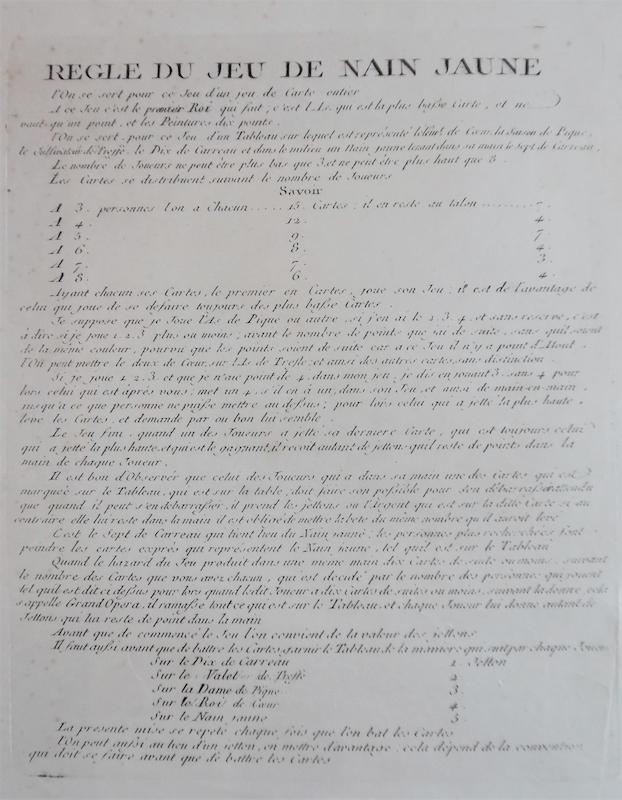 REGLE DU JEU DE NAIN JAUNE
l'On se sert pour ce Jeu d'un jeu de Carte entier
A ce Jeu c'est le premier Roi qui fait; c'est l'As qui est la plus basse Carte, et ne
vaut qu'un point, et les Peintures dix points.
l'On se sert pour ce Jeu d'un Tableau sur lequel est représenté de Cœur, la de Pique,
le de Treffle, le Dix de Carreau et dans le milieu un Nain jaune tenant dans sa main le Sept de Carreau,
Le nombre de Joueurs ne peut être plus bas que 3. et ne peut être plus haut que 8.
Les Cartes se distribuent suivant le nombre de Joueurs
Savoir
A 3. personnes l'on a Chacun..... 15. Cartes; il en reste au talon......... 7.
A 4. 12. 4.
A 5. 9. 7
A 6. 8. 4
A 7. 7. 3.
A 8. 6. 4.
Ayant chacun ses Cartes, le premier en Cartes, joue son Jeu; il est de l'avantage de
celui qui joue de se defaire toujours des plus basse Cartes.
Je suppose que je Joue l'As de Pique ou autre, si j'en ai le 2. 3. 4. et sans reserve, c'est
à dire si je joue 1. 2. 3 plus ou moins; avant le nombre de points que j'ai de suite, sans qu'il soient
de la même couleur, pourvu que les points soient de suite car a ce Jeu il n'y a point d'Atout.
l'On peut mettre le deux de Cœur, sur l'As de Trefle, et ainsi des autres cartes sans distinction.
Si je joue 1. 2. 3. et que je n'aie point de 4. dans mon jeu, je dis en jouant 3. sans 4 pour
lors celui qui est après vous; met un 4. s'il en à un, dans son Jeu, et ainsi de main-en-main,
jusqu'a ce que personne ne puisse mettre au dessus; pour lors celui qui a jetté la plus haute,
leve les Cartes, et demande par ou bon lui semble.
Le Jeu fini, quand un des Joueurs a jetté sa derniere Carte, qui est toujours celui
qui a jetté la plus haute et qui est le gagnant, il recoit autant de jettons qu'il reste de points dans la
main de chaque Joueur.
Il est bon d'Observer que celui des Joueurs qui a dans sa main une des Cartes qui est
marquée sur le Tableau, qui est sur la table, doit faire son possible pour s'en débarrasser attendu
que quand il peut s'en debarrasser, il prend les jettons ou l'Argent qui est sur la ditte Carte si au
contraire elle lui reste dans la main il est obligé de mettre la bete du même nombre qu'il auroit levé
C'est le Sept de Carreau qui tient lieu du Nain jaune; les personnes plus recherchées font
peindre les cartes exprès qui representent le Nain jaune, tel qu'il est sur le Tableau
Quand le hazard du Jeu produit dans une même main dix Cartes de suite ou moins, suivant
le nombre des Cartes que vous avez chacun, qui est decidé par le nombre des personnes qui jouent
tel qu'il est dit ci dessus pour lors quand le dit Joueur a dix Cartes de suites ou moins, suivant la donne cela
s'appelle Grand Opera, il ramasse tout ce qui est sur le Tableau, et chaque Joueur lui donne autant de
Jettons qui lui reste de point dans la main
Avant que de commencé le Jeu l'on convient de la valeur des jettons
Il faut aussi avant que de battre les Cartes, garnir le Tableau de la maniere qui suit par chaque Joueur
Sur le Dix de Carreau 1. Jetton
Sur le Valet de Treffé 2.
Sur la Dame de Pique 3.
Sur le Roi de Cœur 4
Sur le Nain jaune 5
La presente mise se repete chaque fois que l'on bat les Cartes
l'On peut aussi au lieu d'un jetton, en mettre d'avantage; cela dépend de la convention
qui doit se faire avant que de battre les Cartes